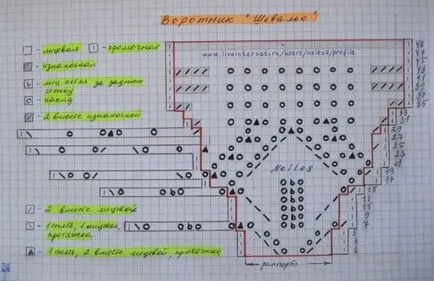 Воротник "Шевалье"
www.liveinternet.ru/users/neitos/profile
- лицевая
- кромочная
- изнаночная
- лиц. петля за заднюю стенку
- накид
- 2 вместе изнаночной
Neitos
- 2 вместе лицевой
- 1 снять, 1 лицевая, протяжка
- 1 снять, 2 вместе лицевой, протяжка
раппорт
31
29
27
25
23
21
19
17
15
13
11
9
7
5
3
1